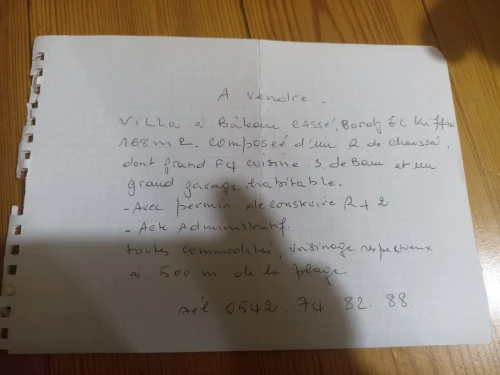 A vendre.
Villa à Bâteau cassé, Bordj EL Kiffan
168 m2. composeé d'un R de chaussé,
dont grand F4 cuisine. S. de Bain et un
grand garage. habitable.
- Avec permin de construire R + 2
- Acte Administratif.
toutes commodités, voisinage respectueux
à 500 m de la plage
tél 0542. 74. 82. 88.